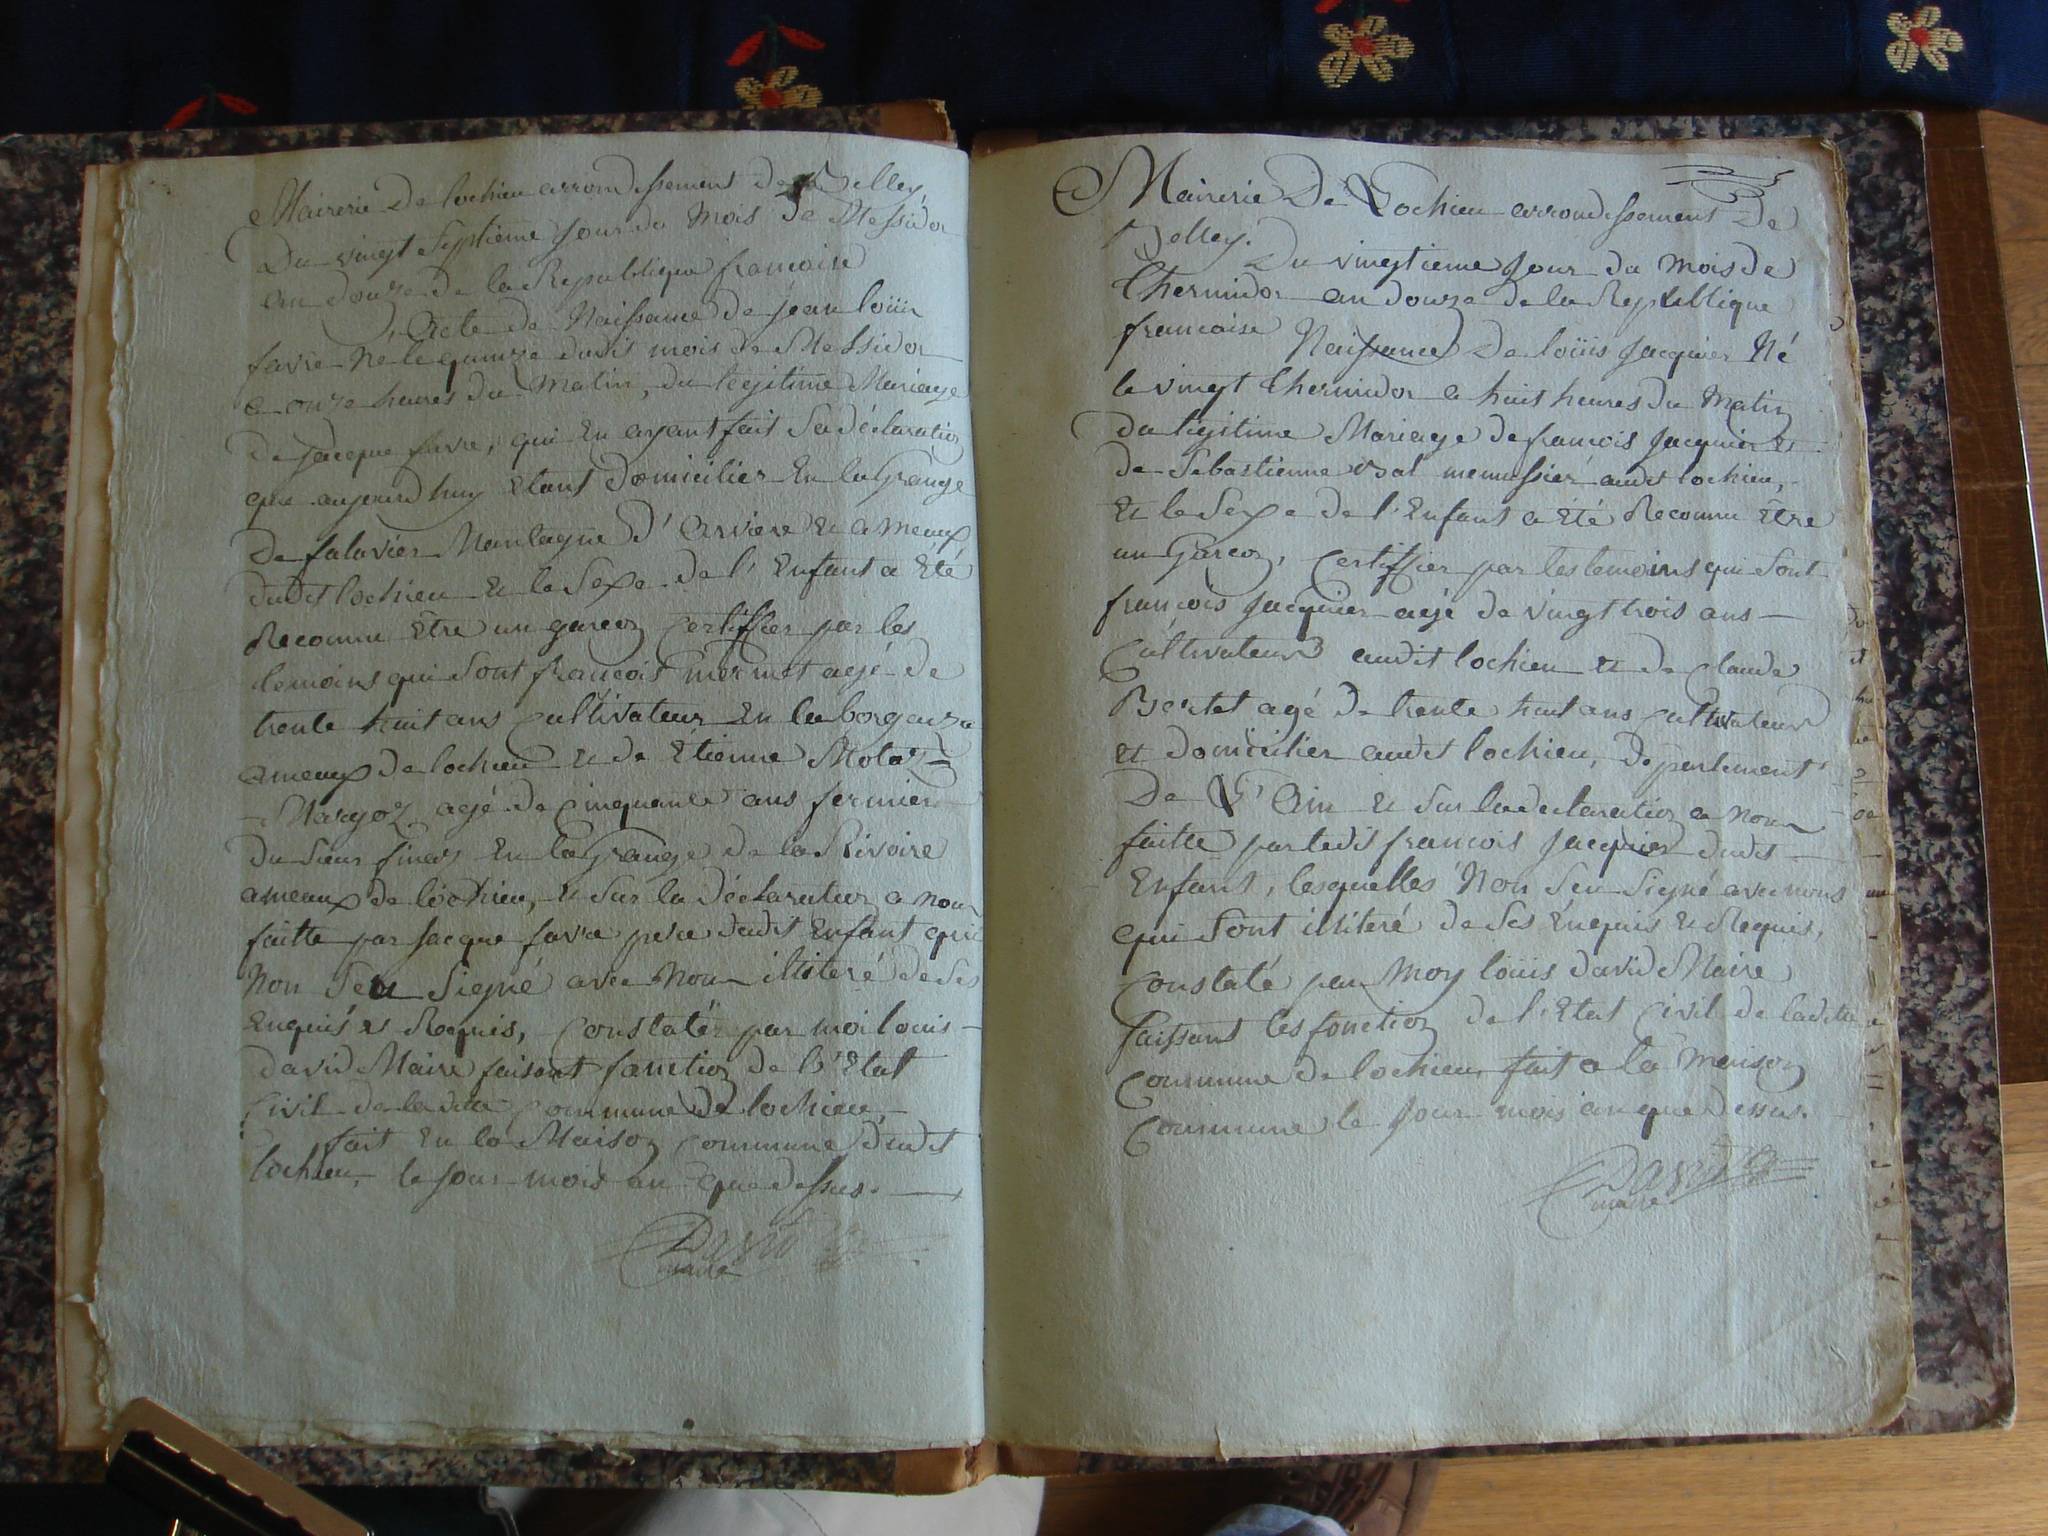 Mairerie De lochieu arrondissement de Belley
Du vingt Septieme Jour du Mois de Messidor
an douze de la Republique francoise
Acte de Naissance de jean loüis
favre Né le quinze dudit mois de Messidor
a onze heures du Matin, du legitime Mariage
de jacque favre, qui En ayant fait Sa déclaration
que aujourd huy Etant Domicilier En la Grange
De falavier Montagne d'Arviere Et ameaux
dudit lochieu Et le Sexe de l'Enfant a Eté
Reconnu Etre un garcon Certiffier par les
temoins qui Sont francois mermet agé de
trente huit ans Cultivateur En la
ameaux de lochieu Et de Etienne
agé de Cinquante ans fermier
du Sieur En la Grange de la Rivoire
ameaux de lochieu, Et Sur la Déclaration a nous
faitte par Jacque favre pere dudit Enfant qui
Non Seu Signé avec Nous illiteré de Ses
Enquis Et Requis, Constatér par moi louis
david Maire faisant fonction de l'Etat
Civil de la dite Commune de lochieu,
fait En la Maison Commune dudit
lochieu, le Jour mois an que dessus.
David
maire
Mairerie De Lochieu arrondissement De
Belley. Du vingtieme Jour du mois de
thermidor an douze de la Republique
francoise Naissance De loüis Jacquier Né
le vingt thermidor a huit heures du Matin
du legitime Mariage de francois Jacquier Et
de Sebastienne menussier audit lochieu,
Et le Sexe de l'Enfant a Eté Reconnu Etre
un Garcon, Certiffier par les temoins qui Sont
francois Jacquier agé de vingt trois ans
Cultivateur audit lochieu Et de Claude
Bertet agé de trente huit ans Cultivateur
Et domicilier audit lochieu, Departement
De L'Ain Et Sur la declaration a nous
faitte par ledit francois Jacquier dudit
Enfant, lesquelles Non Seu Signé avec nous
qui Sont illiteré de Ses Enquis Et Requis,
Constaté par Moy loüis david Maire
faissant les fonction de l'Etat Civil de ladite
Commune de lochieu fait a la Maison
Commune le Jour mois an que dessus.
David
maire